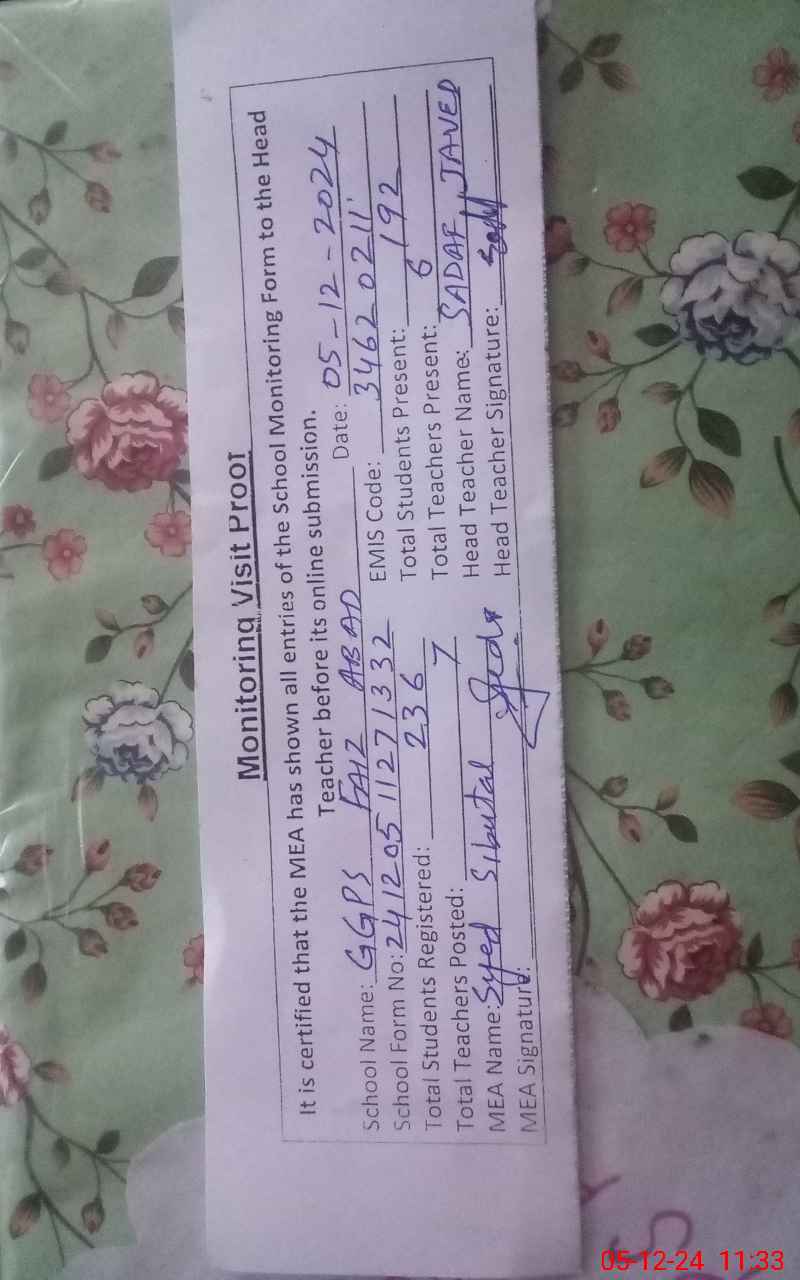 Monitoring Visit Proof
It is certified that the MEA has shown all entries of the School Monitoring Form to the Head
Teacher before its online submission.
School Name: GGPS FAIZ ABAD Date: 05-12-2024
School Form No: 241205 11271332 EMIS Code: 34620211
Total Students Registered: 236 Total Students Present: 192
Total Teachers Posted: 7 Total Teachers Present: 6
MEA Name: Syed Sibutal Head Teacher Name: SADAF JAVED
MEA Signature: Head Teacher Signature:
05-12-24 11:33